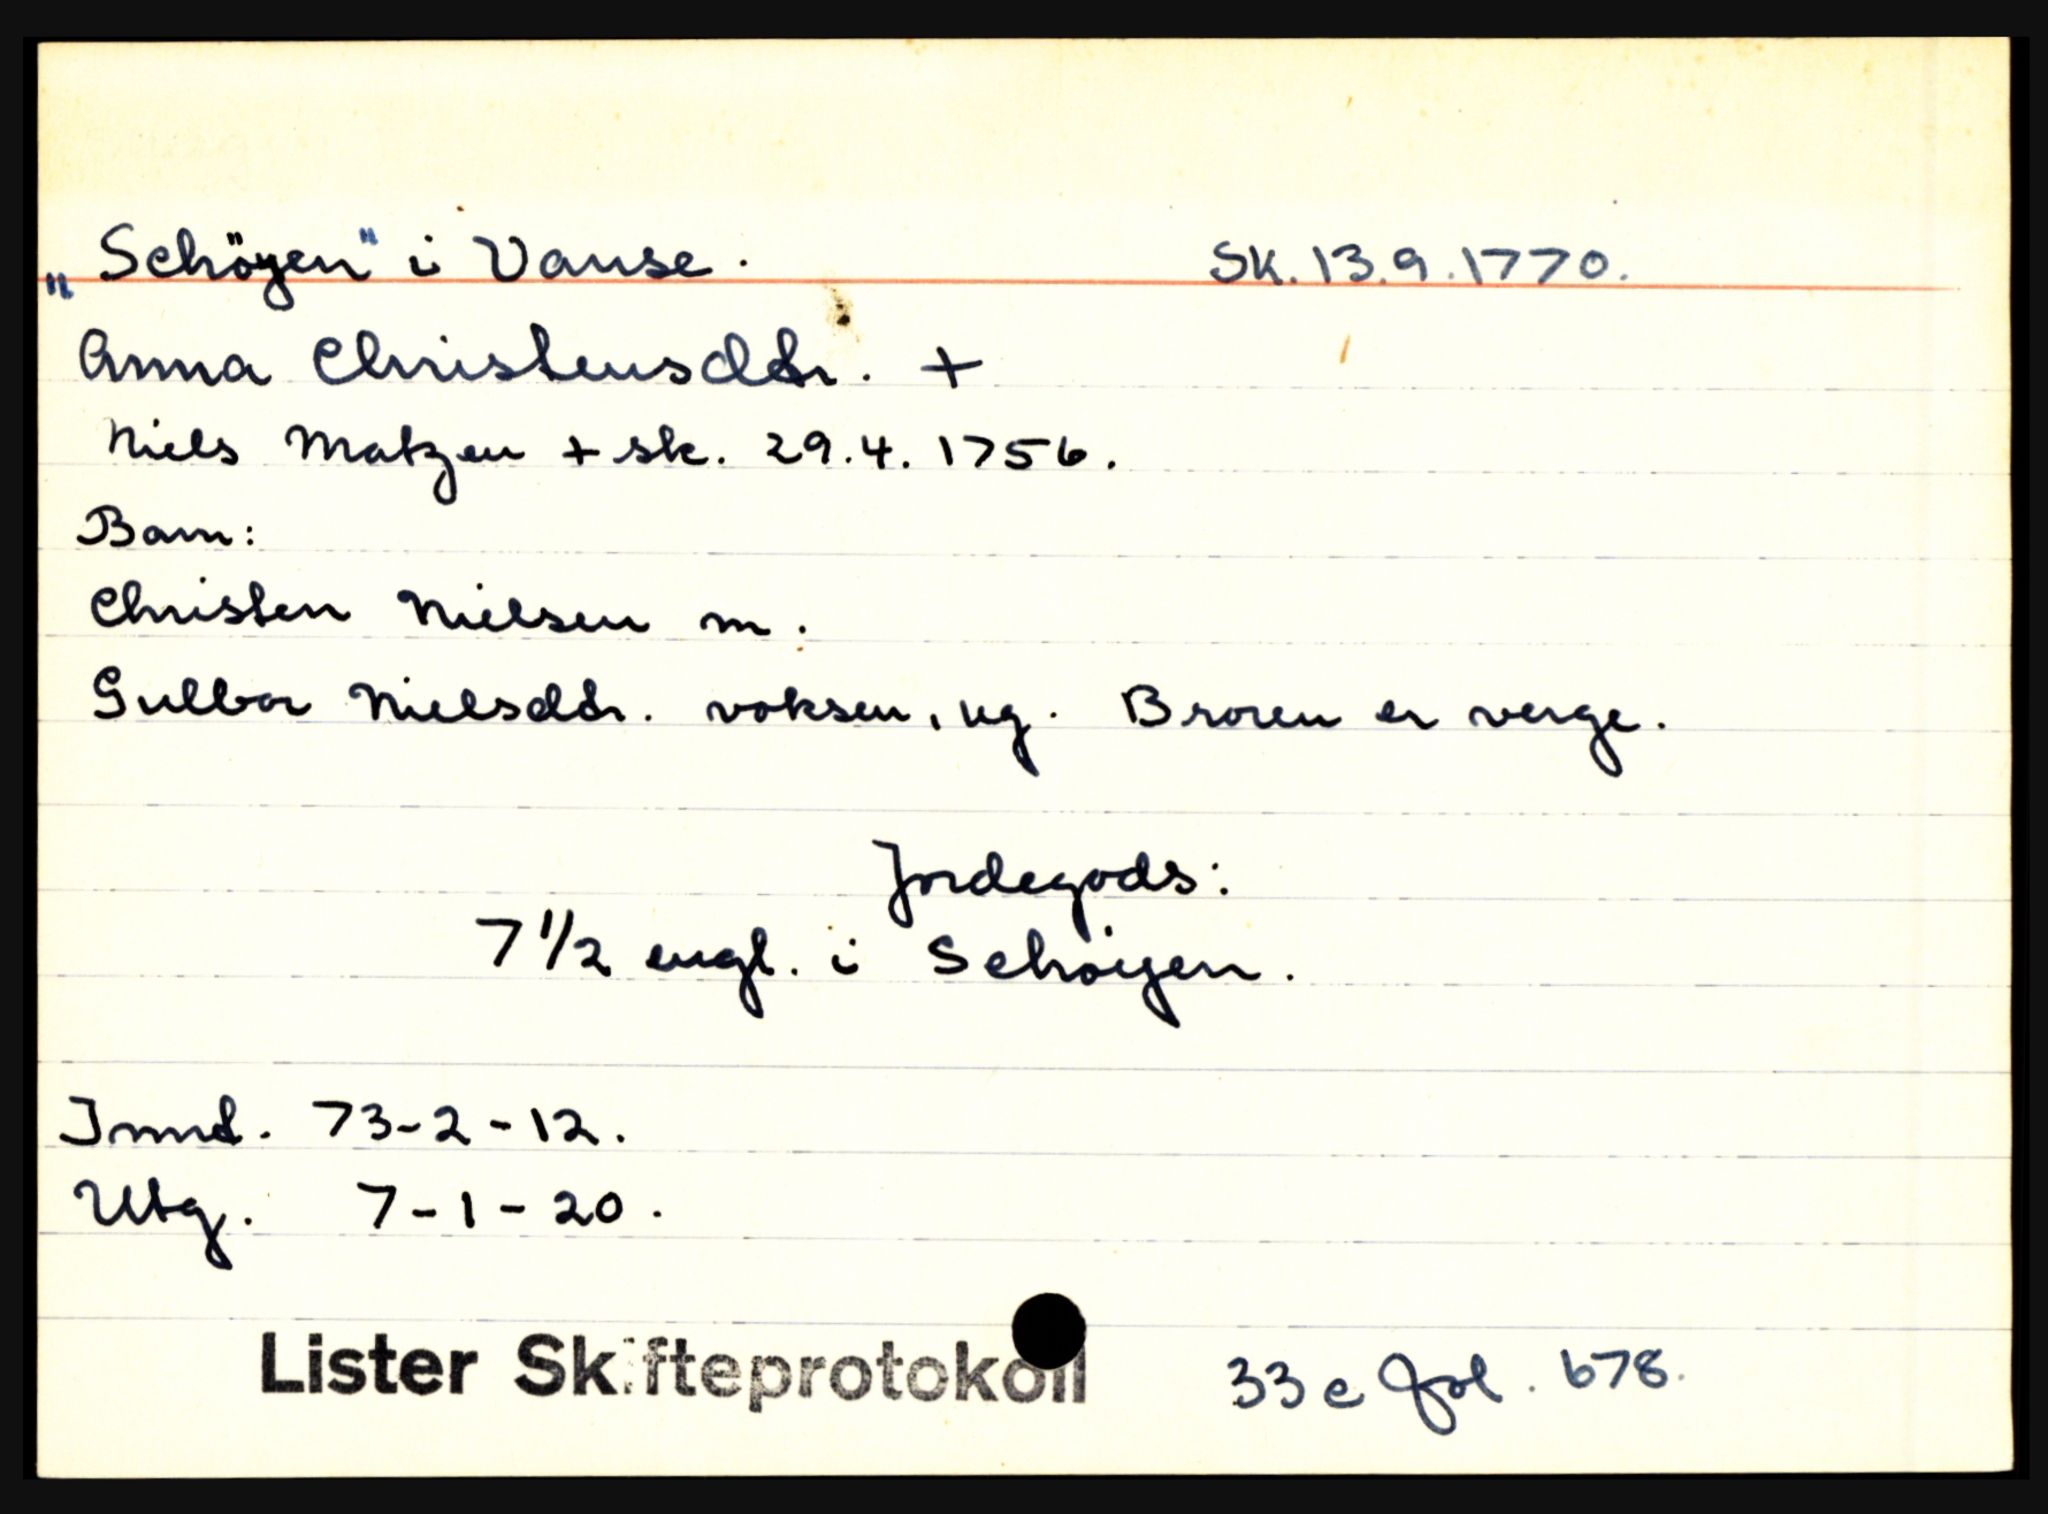 „Schöyen" i Vanse. Sk. 13.9.1770.
Anna Christensdtr. +
Niels Matzen + sk. 29.4.1756.
Barn:
Christen Nielsen m.
Gulbor Nielsdtr. voksen, ug. Broren er verge.
Jordegods:
7 1/2 engl. i Schöyen.
Innt. 73-2-12.
Utg. 7-1-20.
Lister Skifteprotokoll 33 c fol. 678.